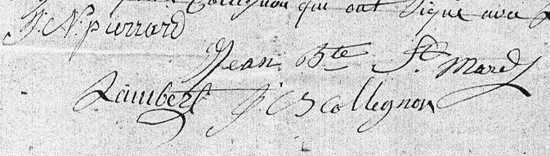 Collignon qui ont signé avec
J. N. pierrard
Jean Bte St Mard
Lambert J B Collignon